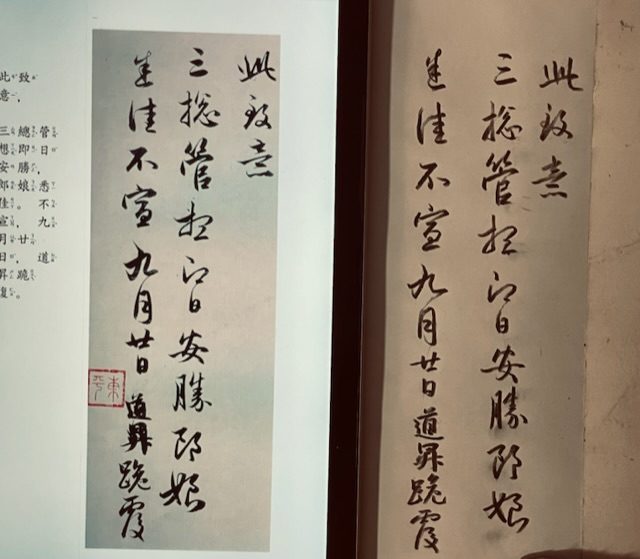 此致
意，
三總管
想即日
安勝，
郎娘悉
佳。不
宣，九
月廿
日，道
昇跪
復。
此致意
三總管想即日安勝郎娘
悉佳不宣九月廿日道昇跪覆
東平
此致意
三總管想即日安勝郎娘
悉佳不宣九月廿日道昇跪覆